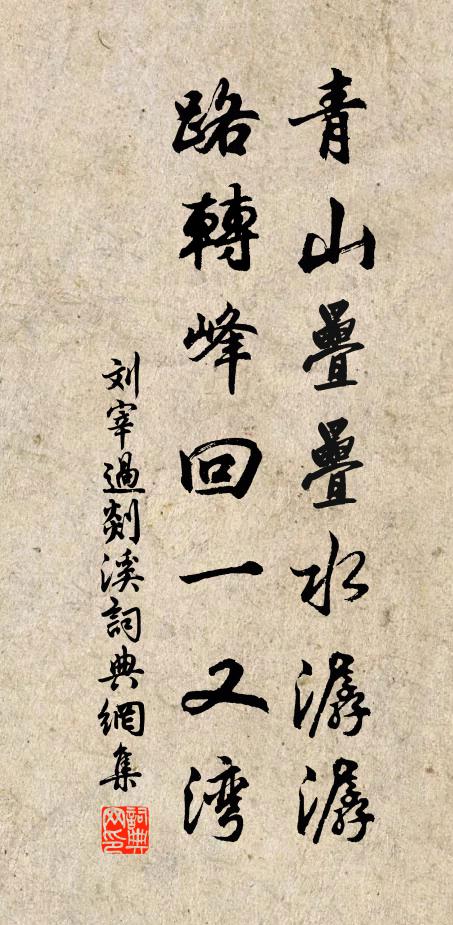 青山疊疊水潺潺
路轉峰回一又湾
刘宰過剡溪詞典網集
詞典網印